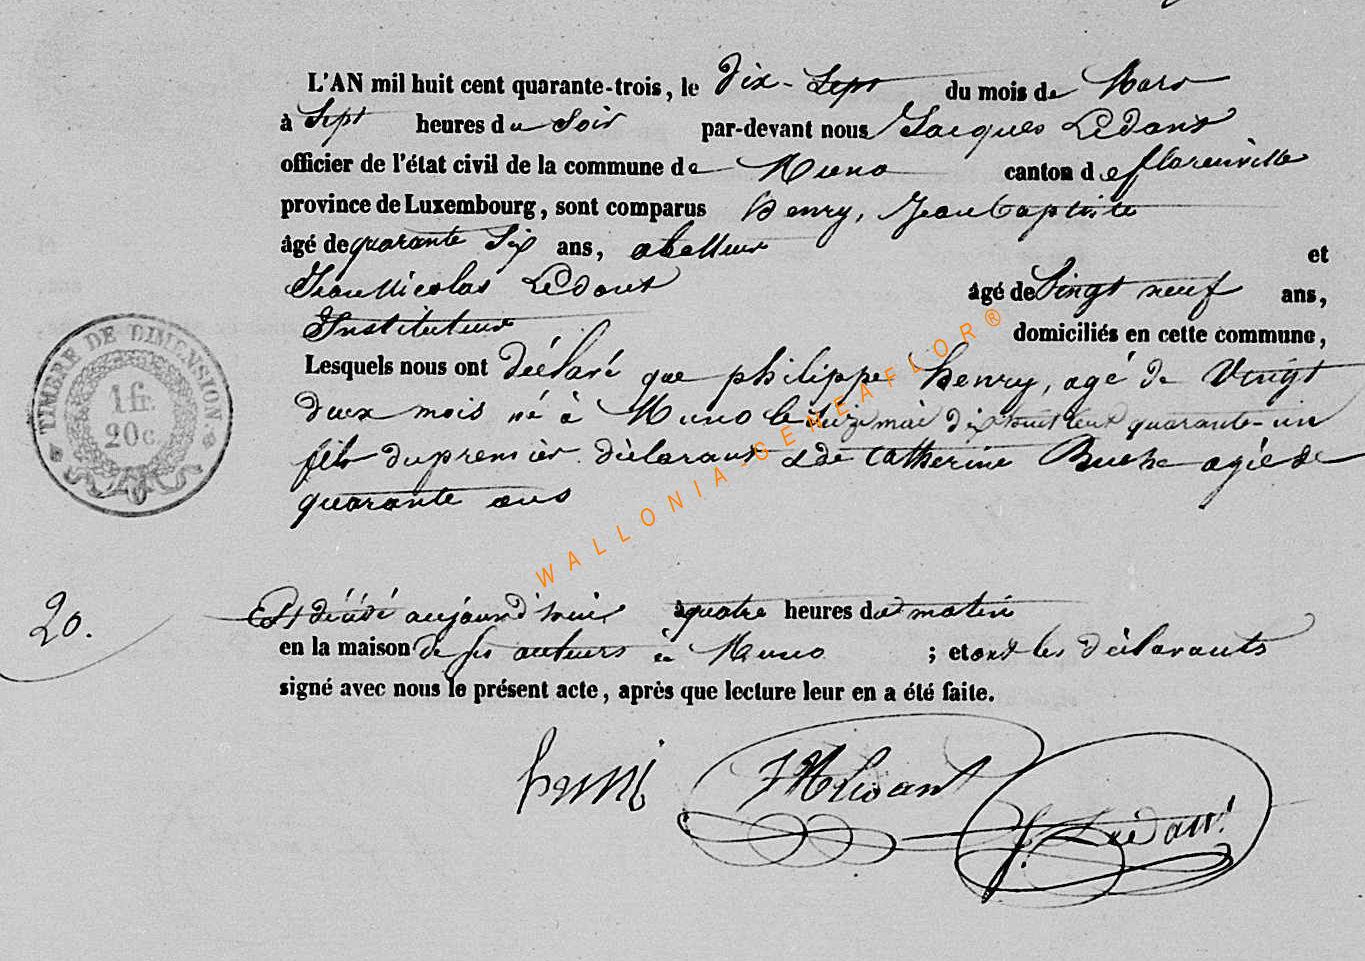 L'AN mil huit cent quarante-trois, le dix-Sept du mois de Mars
à Sept heures du Soir par-devant nous Jacques Ledant
officier de l'état civil de la commune de Muno canton de florenville
province de Luxembourg, sont comparus henry, Jean baptiste
âgé de quarante Six ans, et
Jean Nicolas Ledant âgé de Vingt neuf ans,
Instituteur domiciliés en cette commune,
Lesquels nous ont déclaré que philippe henry, agé de Vingt
deux mois né à Muno le mai dix huit cent quarante-un
fils du premier déclarant & de Catherine agée de
quarante ans
TIMBRE DE DIMENSION.
1 fr.
20 c.
WALLONIA-GENEAFLOR®
20.
Est décédé aujourd'huie à quatre heures du matin
en la maison de ses auteurs à Muno ; et ont les déclarants
signé avec nous le présent acte, après que lecture leur en a été faite.
henri
JN Ledant
J. Ledant